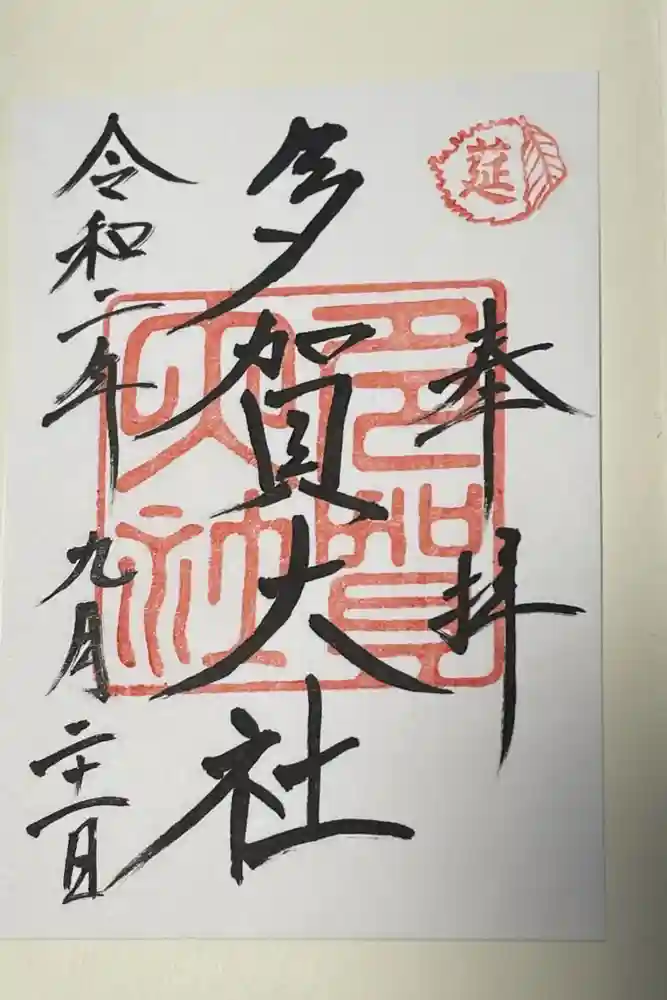 莚
奉拝
多賀大社
多賀
大社
令和二年九月二十一日